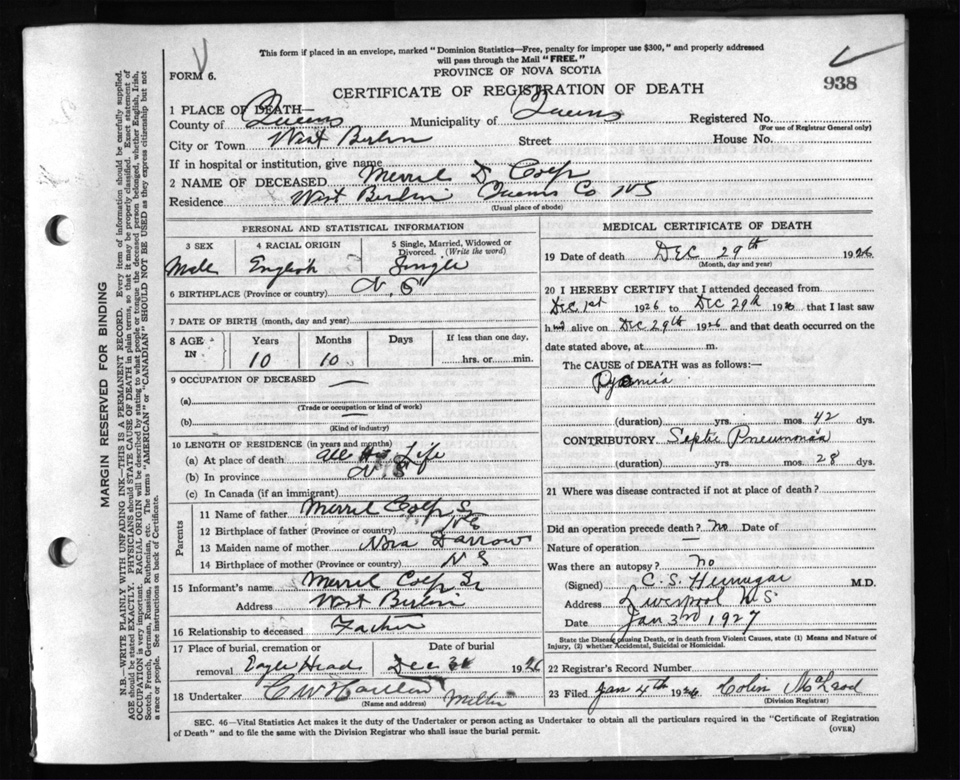 This form if placed in an envelope, marked "Dominion Statistics—Free, penalty for improper use $300," and properly addressed
will pass through the Mail "FREE."
FORM 6.
PROVINCE OF NOVA SCOTIA
938
CERTIFICATE OF REGISTRATION OF DEATH
1 PLACE OF DEATH—
County of Queens Municipality of Queens Registered No.
(For use of Registrar General only)
City or Town West Berlin Street House No.
If in hospital or institution, give name
2 NAME OF DECEASED Merril D Colp
Residence West Berlin Queens Co NS
(Usual place of abode)
PERSONAL AND STATISTICAL INFORMATION
3 SEX 4 RACIAL ORIGIN 5 Single, Married, Widowed or Divorced. (Write the word)
Male English Single
6 BIRTHPLACE (Province or country) N. S
7 DATE OF BIRTH (month, day and year)
8 AGE IN Years Months Days If less than one day,
10 10 hrs. or min.
9 OCCUPATION OF DECEASED —
(a)
(Trade or occupation or kind of work)
(b)
(Kind of industry)
10 LENGTH OF RESIDENCE (in years and months)
(a) At place of death all his Life
(b) In province N. S
(c) In Canada (if an immigrant)
Parents
11 Name of father Merril Colp Sr
12 Birthplace of father (Province or country) NS
13 Maiden name of mother Nora Darrow
14 Birthplace of mother (Province or country) N S
15 Informant's name Merril Colp Sr
Address West Berlin
16 Relationship to deceased Father
17 Place of burial, cremation or Date of burial
removal Eagle Head Dec 31 1926
18 Undertaker Milton
(Name and address)
MEDICAL CERTIFICATE OF DEATH
19 Date of death DEC 29th 1926
(Month, day and year)
20 I HEREBY CERTIFY that I attended deceased from
Dec 1st 1926 to Dec 29th 1926 that I last saw
him alive on Dec 29th 1926 and that death occurred on
date stated above, at m.
The CAUSE OF DEATH was as follows:—
Pyaemia
(duration) yrs. mos. 42 dys.
CONTRIBUTORY Septic Pneumonia
(duration) yrs. mos. 28 dys.
21 Where was disease contracted if not at place of death?
Did an operation precede death? no Date of
Nature of operation —
Was there an autopsy? no
(Signed) C. S. Hennigar M.D.
Address Liverpool N.S
Date Jan 3rd 1927
State the Disease causing Death, or in death from Violent Causes, state (1) Means and Nature of
Injury, (2) whether Accidental, Suicidal or Homicidal.
22 Registrar's Record Number
23 Filed Jan 4th 1926 Colin McLeod
(Division Registrar)
SEC. 46—Vital Statistics Act makes it the duty of the Undertaker or person acting as Undertaker to obtain all the particulars required in the "Certificate of Registration
of Death" and to file the same with the Division Registrar who shall issue the burial permit.
(OVER)
MARGIN RESERVED FOR BINDING
N.B.—WRITE PLAINLY WITH UNFADING INK—THIS IS A PERMANENT RECORD. Every item of information should be carefully supplied.
AGE should be stated EXACTLY. PHYSICIANS should STATE CAUSE OF DEATH in plain terms, so that it may be properly classified. Exact statement of
OCCUPATION is very important. RACIAL ORIGIN will be described by stating to what people or tongue the deceased person belonged, whether English, Irish,
Scotch, French, German, Russian, Ruthenian, etc. The terms "AMERICAN" or "CANADIAN" SHOULD NOT BE USED as they express citizenship but not
a race or people. See instructions on back of Certificate.